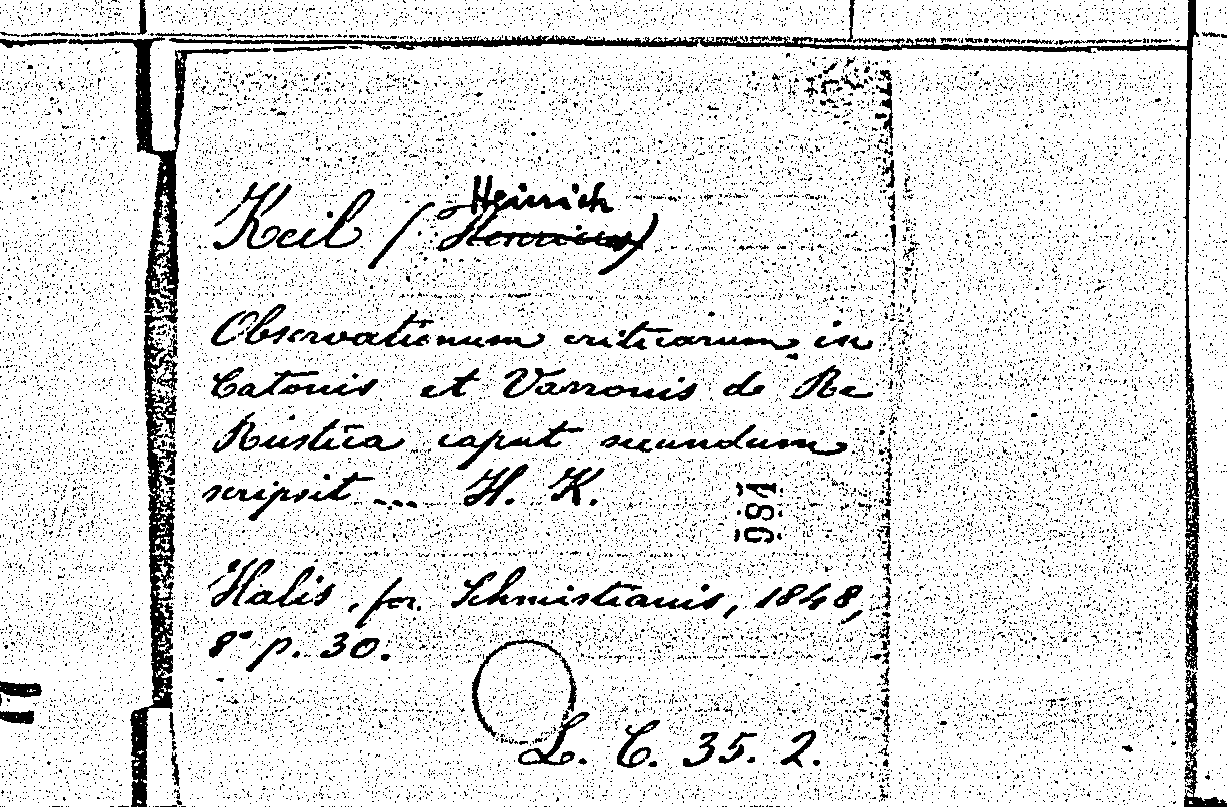 Heinrich
Keil (Henricus)
Observationum criticarum in
Catonis et Varronis de Re
Rustica caput secundum
scripsit ... H. K.
984
Halis, for. Schmistianis, 1848,
8° p. 30.
L. C. 35. 2.